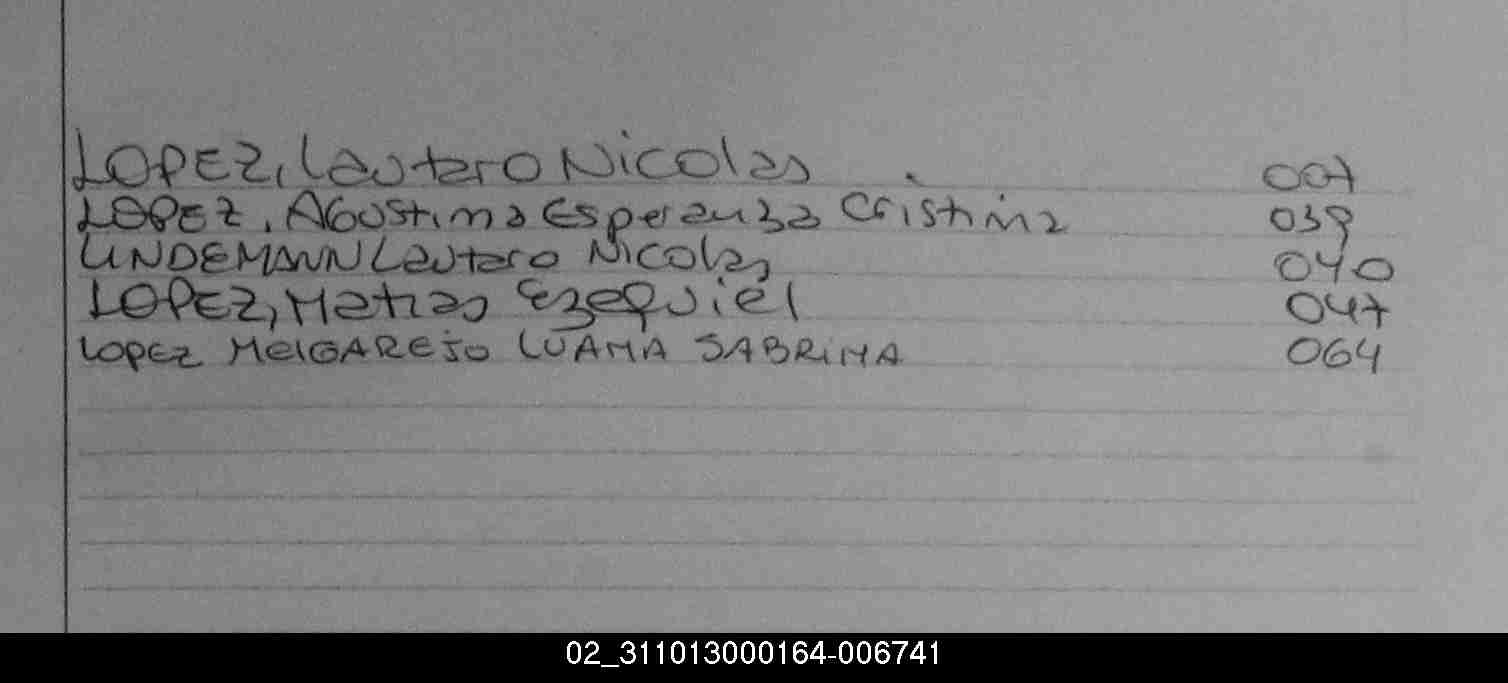 LOPEZ, Lautaro Nicolas 007
LOPEZ, Agustina Esperanza Cristina 039
LINDEMANN Lautaro Nicolas 040
LOPEZ, Matias Ezequiel 047
LOPEZ MElGAREJO LUANA SABRINA 064
02_311013000164-006741